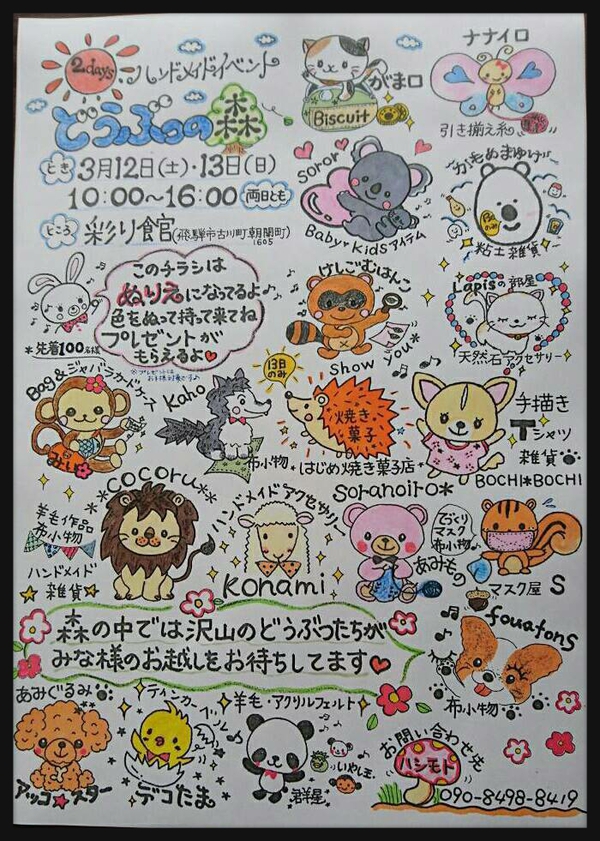 2days
ハンドメイドイベント
どうぶつの森
とき 3月12日(土)・13日(日)
10:00〜16:00 両日とも
ところ 彩り館(飛騨市古川町朝開町1605)
がま口
Biscuit
ナナイロ
引き揃え糸
soror
Baby♥Kidsアイテム
かもめまゆげ
粘土雑貨
このチラシは
ぬりえになってるよ♪
色をぬって持って来てね
プレゼントが
もらえるよ♥
*先着100名様
※プレゼントは
お子様対象です♪
けしごむはんこ
Show you*
Lapisの部屋
天然石アクセサリー
Bag&ジャパンガーグッズ
みり
Kaho
布小物
13日のみ
焼き菓子
はじめ焼き菓子店
手描き
Tシャツ
雑貨
BOCHI*BOCHI
*cocoru*
羊毛作品
布小物
ハンドメイド
雑貨
ハンドメイドアクセサリー
Konami
soranoiro*
あみもの
てづくり
マスク
布小物
マスク屋 S
森の中では沢山のどうぶつたちが
みな様のお越しをお待ちしてます♥
fouatons
布小物
あみぐるみ
アッコ★スター
ティンカーベル
デコたま。
羊毛・アクリルフェルト
いやし玉
群羊屋
お問い合わせ先
ハシモト
090-8498-8419